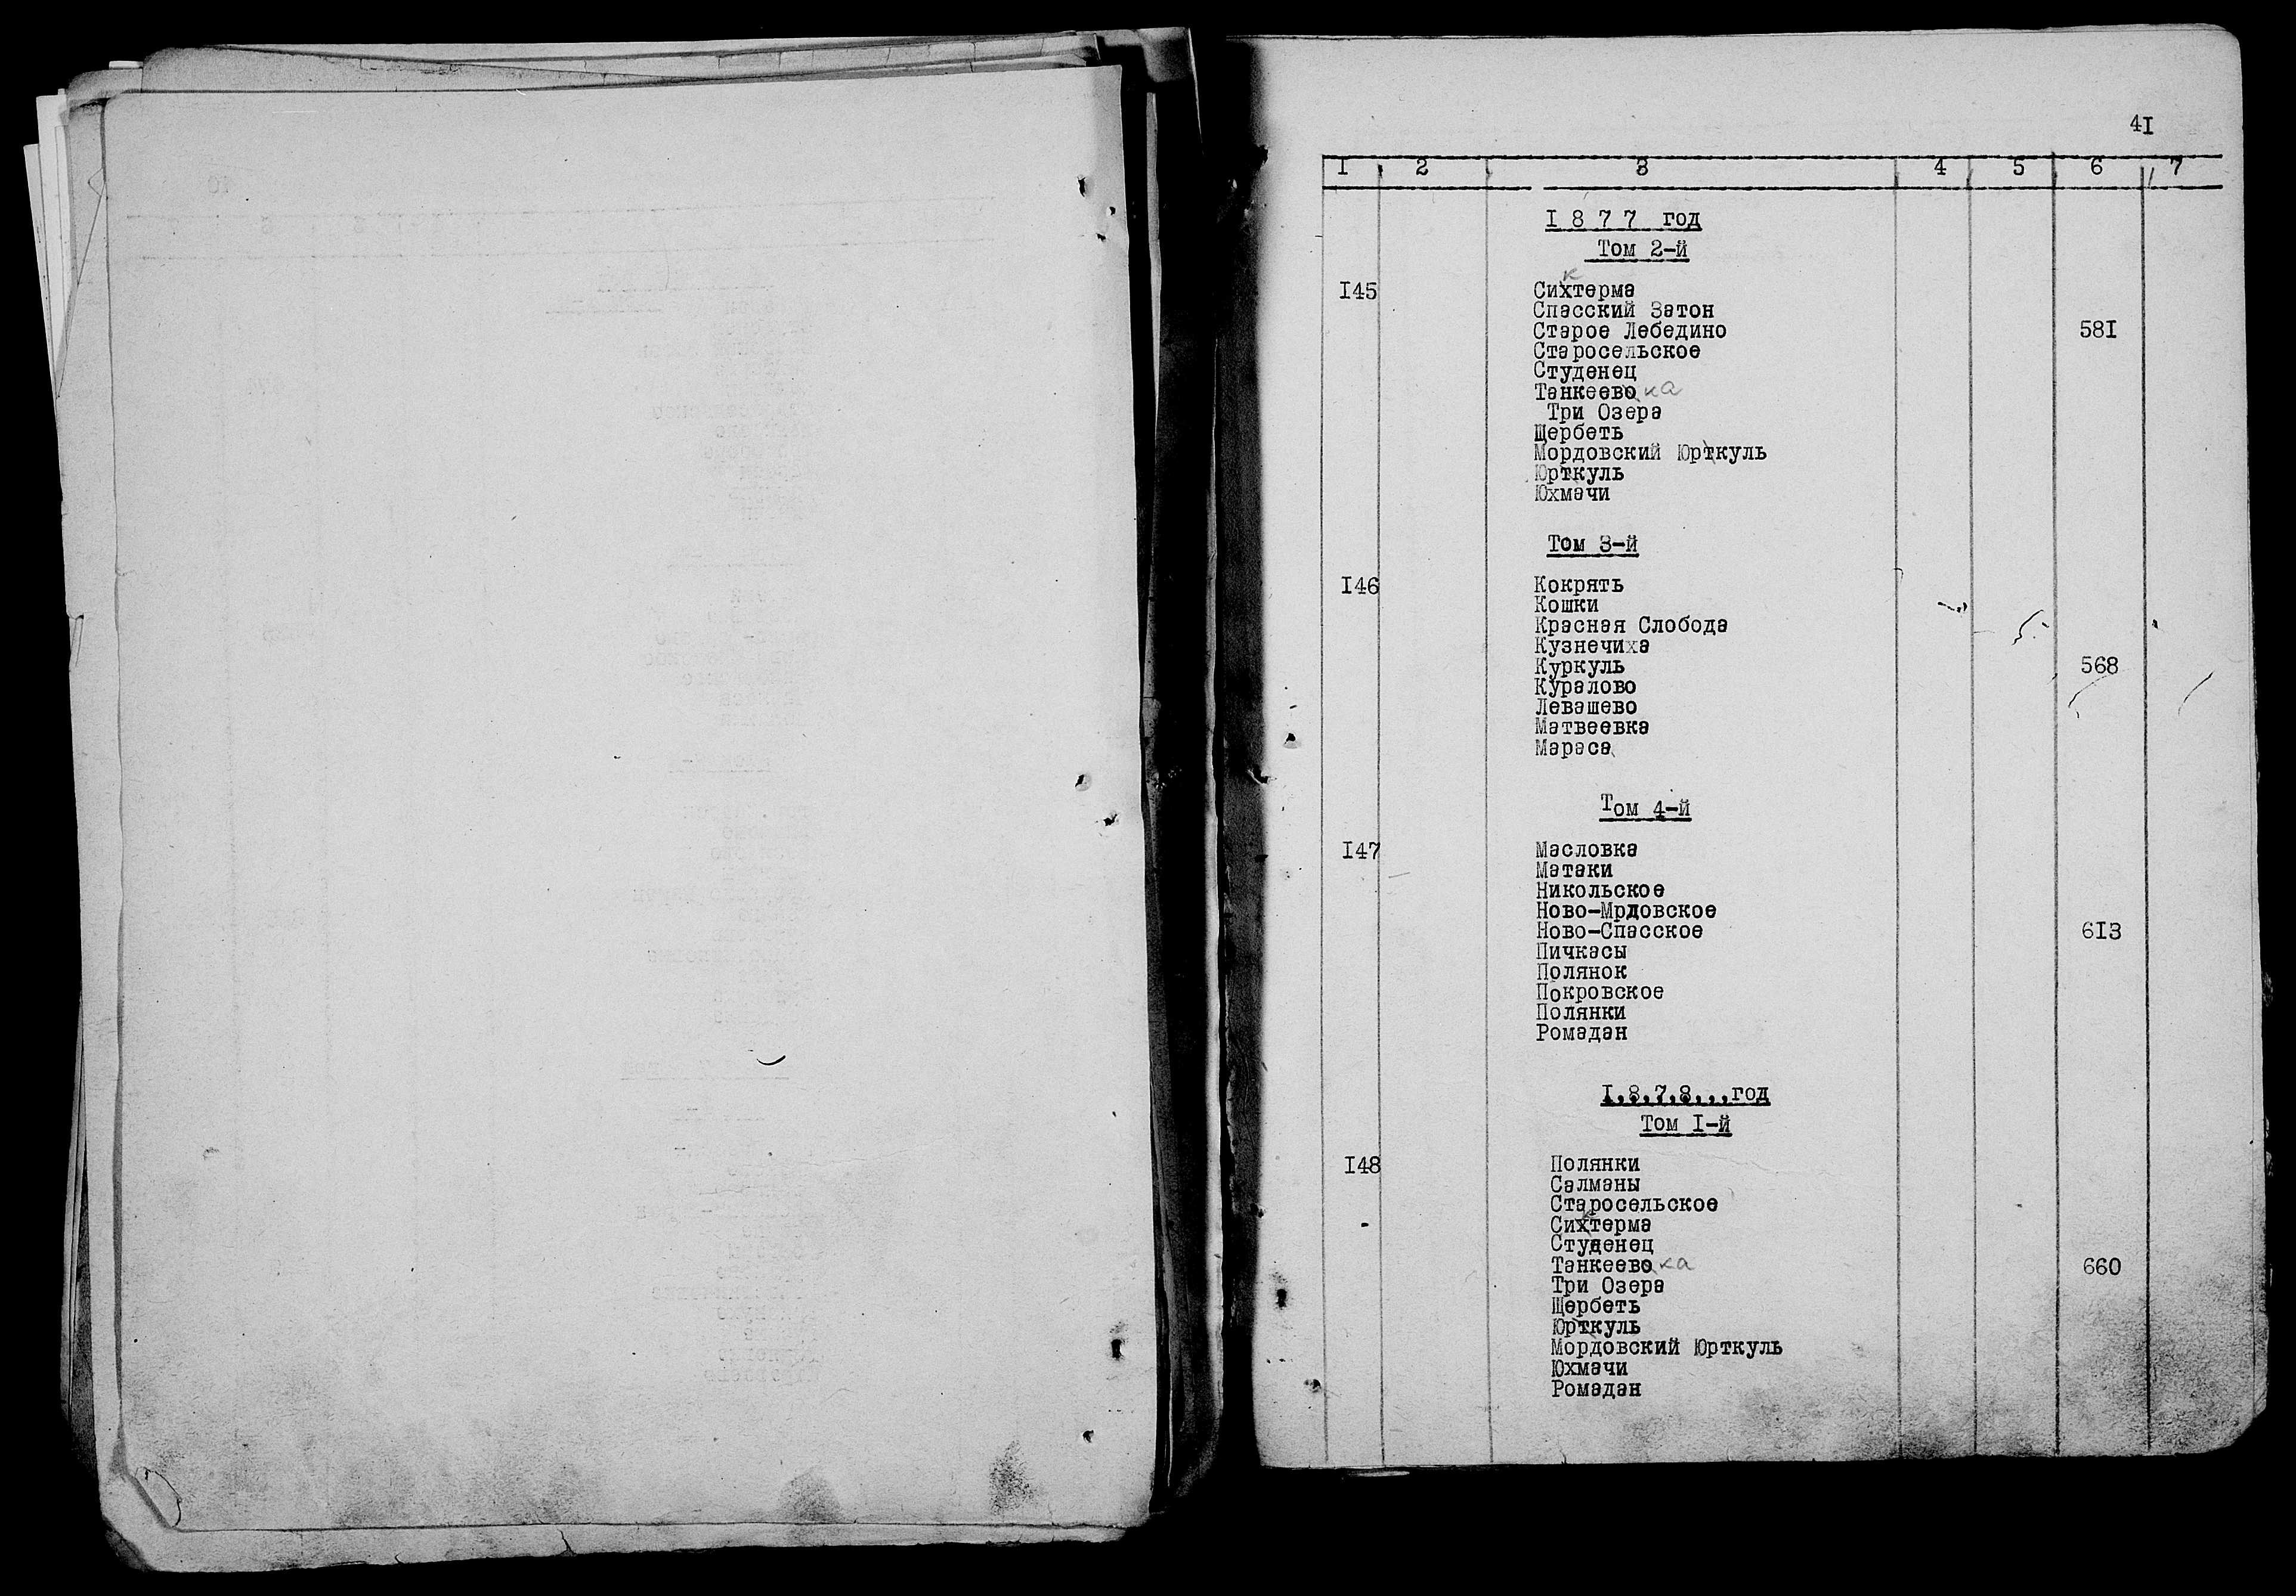 41
1 2 3 4 5 6 7
1877 год
Том 2-й
к
145 Сихтерма
Спасский Затон
Старое Лебедино 581
Старосельское
Студенец
Танкеево ка
Три Озера
Щербеть
Мордовский Юрткуль
Юрткуль
Юхмачи
Том 3-й
146 Кокрять
Кошки
Красная Слобода
Кузнечиха
Куркуль 568
Куралово
Левашево
Матвеевка
Мараса
Том 4-й
147 Масловка
Матаки
Никольское
Ново-Мрдовское
Ново-Спасское 613
Пичкасы
Полянок
Покровское
Полянки
Ромадан
1.8.7.8...год
Том I-й
148 Полянки
Салманы
Старосельское
Сихтерма
Студенец
Танкеево ка 660
Три Озера
Щербеть
Юрткуль
Мордовский Юрткуль
Юхмачи
Ромадан